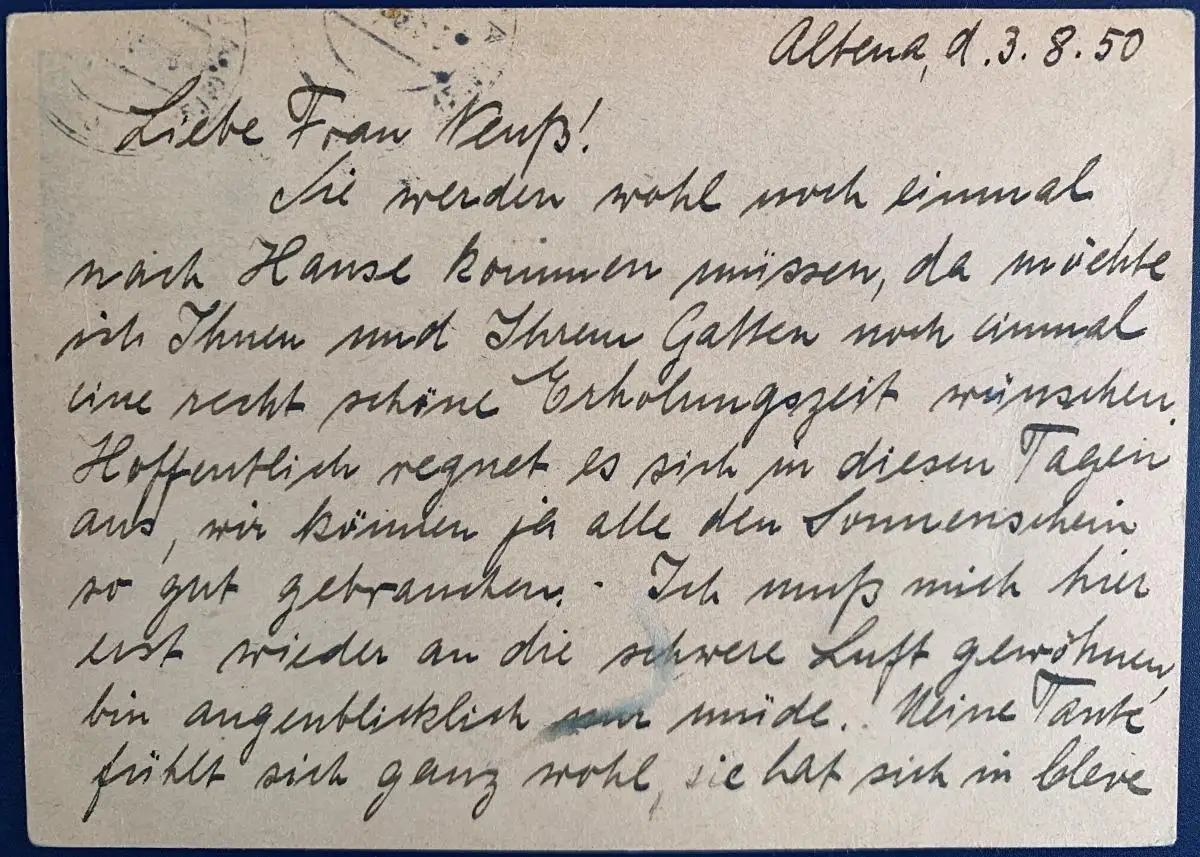 Altena, d. 3. 8. 50
Liebe Frau Neuß!
Sie werden wohl noch einmal
nach Hause kommen müssen, da möchte
ich Ihnen und Ihrem Gatten noch einmal
eine recht schöne Erholungszeit wünschen.
Hoffentlich regnet es sich in diesen Tagen
aus, wir können ja alle den Sonnenschein
so gut gebrauchen. - Ich muß mich hier
erst wieder an die schwere Luft gewöhnen,
bin augenblicklich nur müde. Meine Tante
fühlt sich ganz wohl, sie hat sich in Cleve